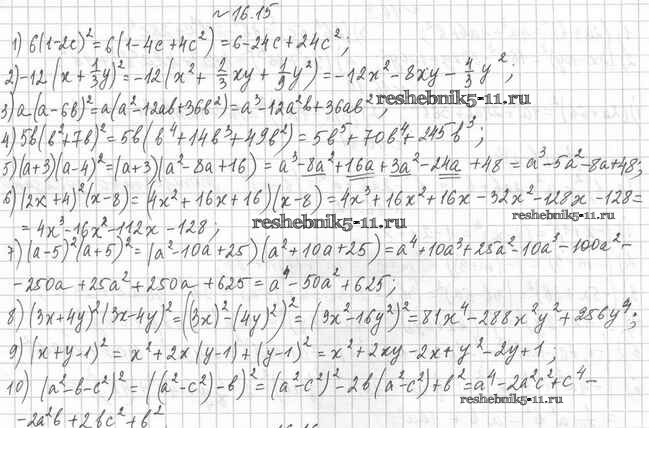 № 16.15
1) 6(1-2c)² = 6(1-4c+4c²) = 6-24c+24c²;
2) -12(x+1/3y)² = -12(x²+2/3xy+1/9y²) = -12x²-8xy-4/3y²;
3) a(a-6b)² = a(a²-12ab+36b²) = a³-12a²b+36ab²;
reshebnik5-11.ru
4) 5b(b²+7b)² = 5b(b⁴+14b³+49b²) = 5b⁵+70b⁴+245b³;
5) (a+3)(a-4)² = (a+3)(a²-8a+16) = a³-8a²+16a+3a²-24a+48 = a³-5a²-8a+48;
6) (2x+4)²(x-8) = (4x²+16x+16)(x-8) = 4x³+16x²+16x-32x²-128x-128=
reshebnik5-11.ru
= 4x³-16x²-112x-128;
reshebnik5-11.ru
7) (a-5)²(a+5)² = (a²-10a+25)(a²+10a+25) = a⁴+10a³+25a²-10a³-100a²-
-250a+25a²+250a+625 = a⁴-50a²+625;
8) (3x+4y)²(3x-4y)² = ((3x)²-(4y)²)² = (9x²-16y²)² = 81x⁴-288x²y²+256y⁴;
9) (x+y-1)² = x²+2x(y-1)+(y-1)² = x²+2xy-2x+y²-2y+1;
10) (a²-b-c²)² = ((a²-c²)-b)² = (a²-c²)²-2b(a²-c²)+b² = a⁴-2a²c²+c⁴-
reshebnik5-11.ru
-2a²b+2bc²+b²